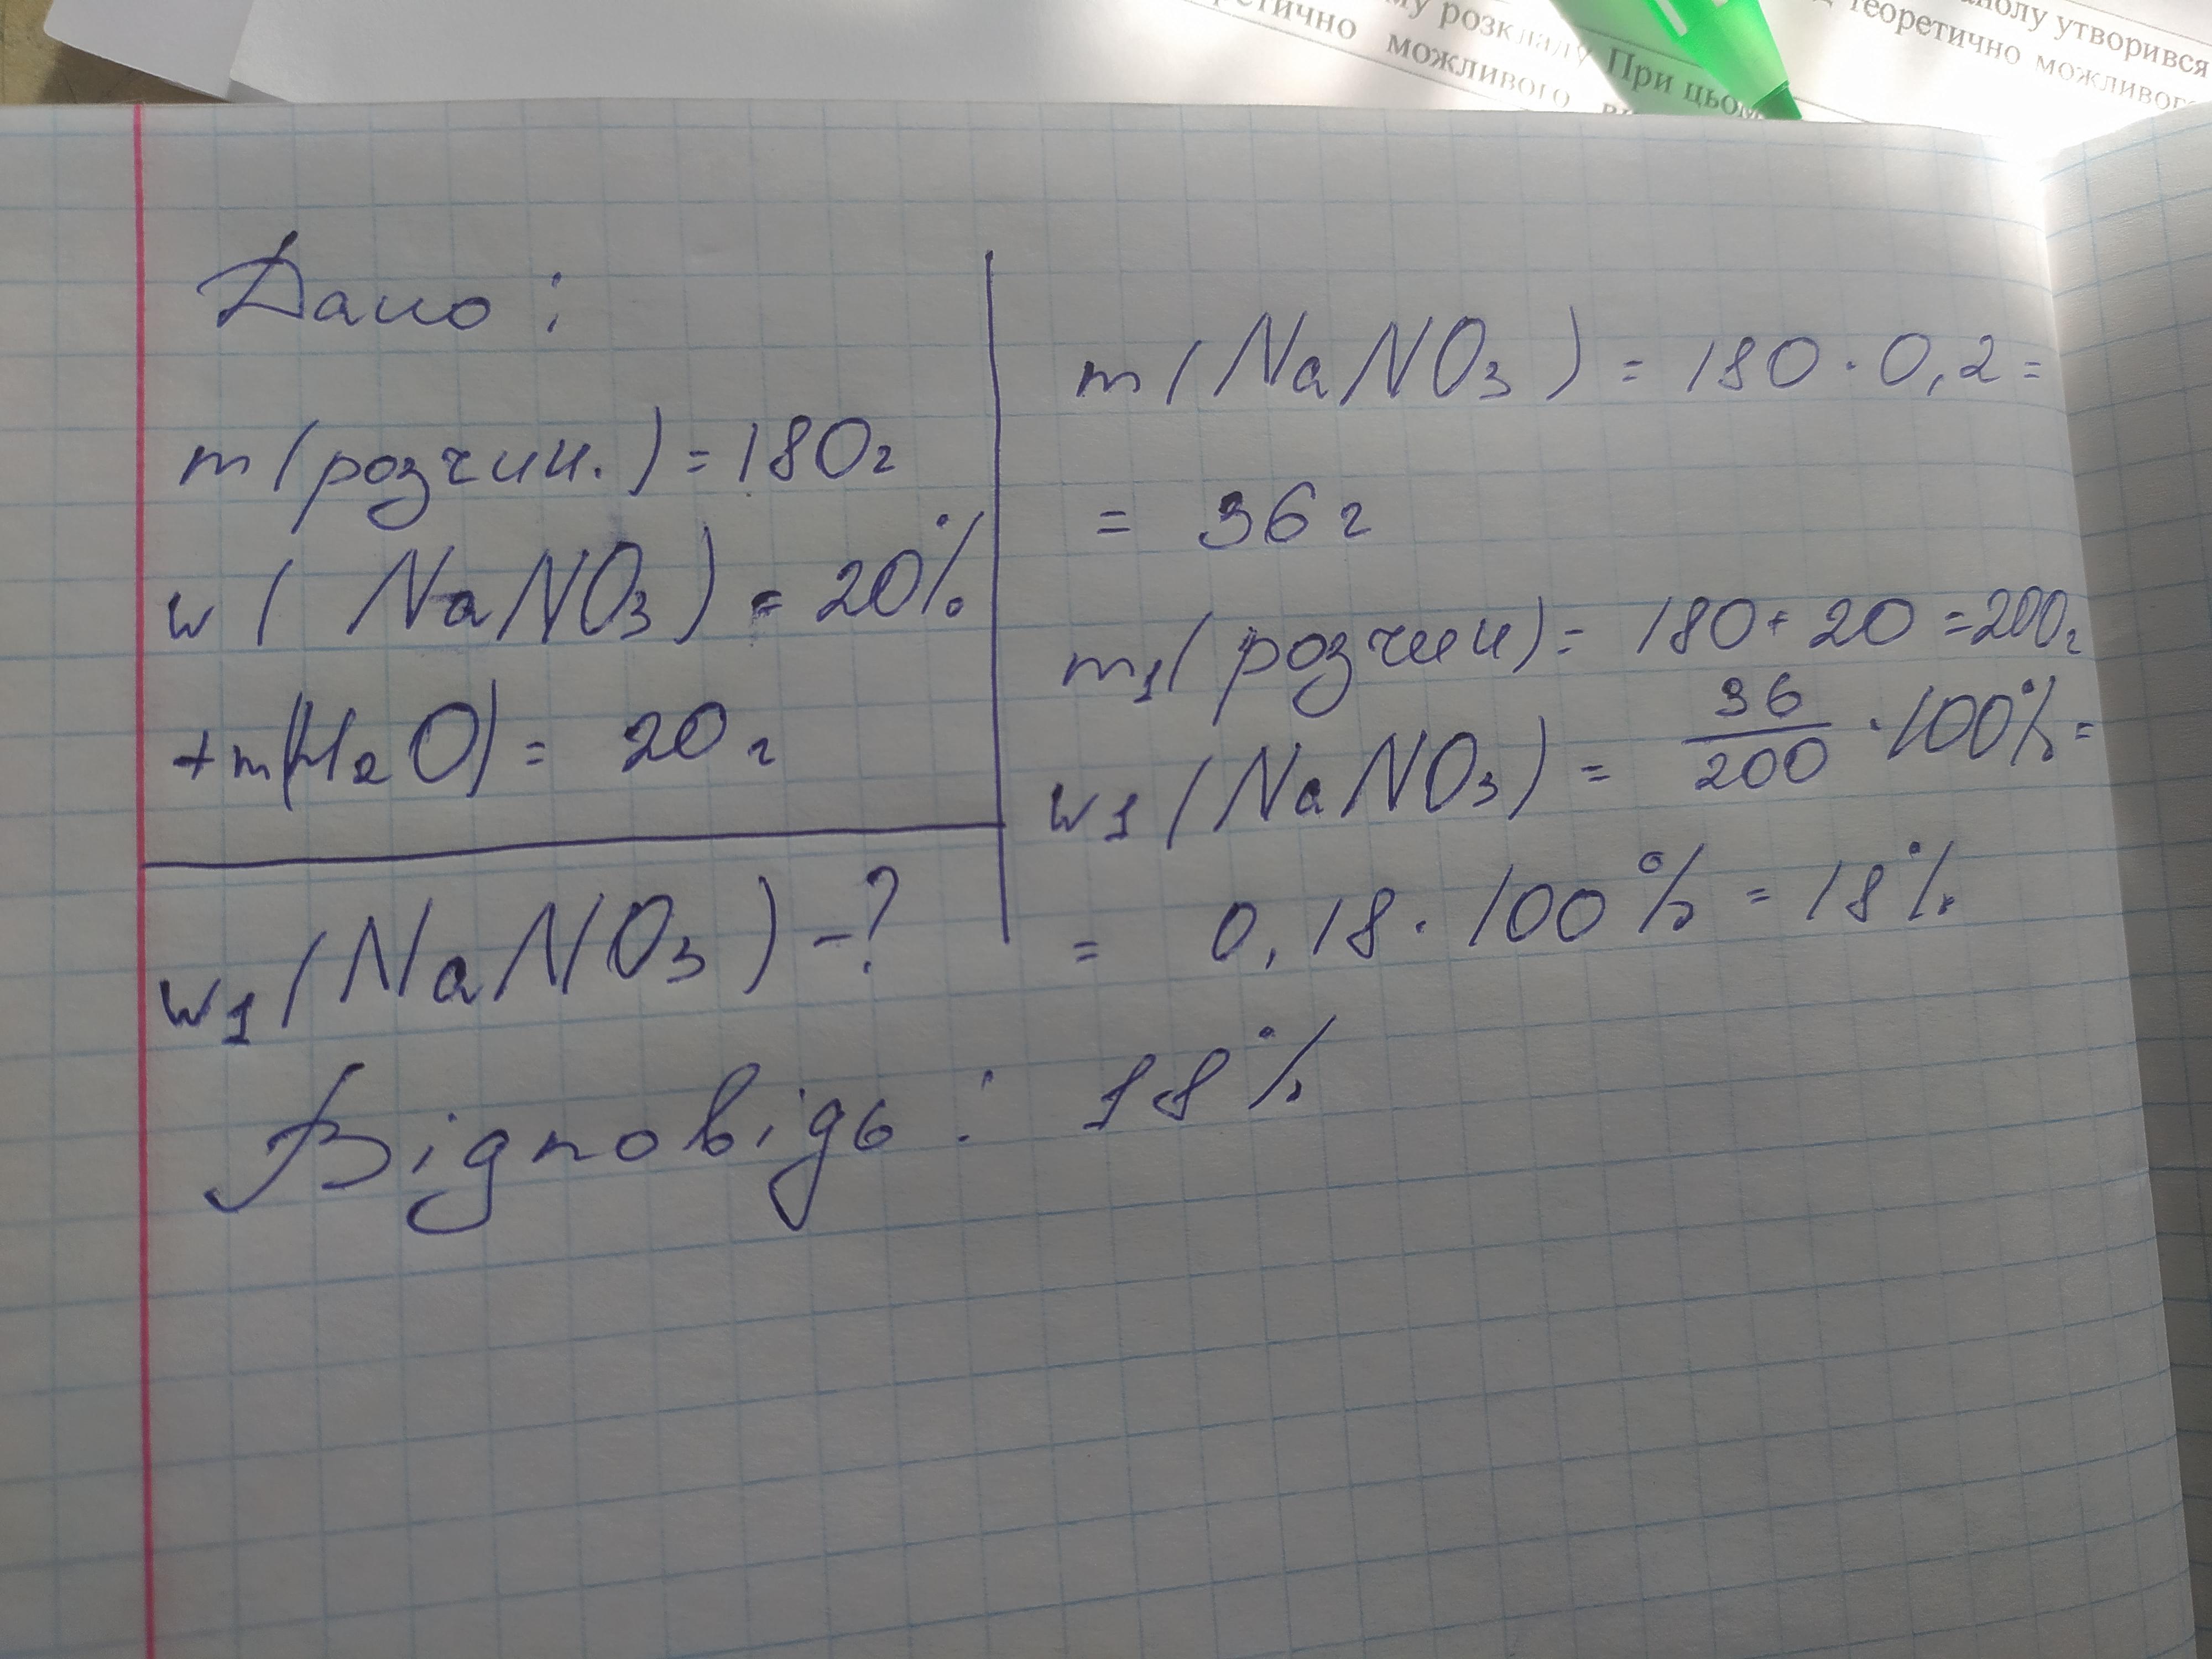 му розкладу. При цьом
етично можливого
нолу утворився
теоретично можливого
Дано:
m(розчин.) = 180г
w(NaNO₃) = 20%
+m(H₂O) = 20г
w₁(NaNO₃) - ?
m(NaNO₃) = 180 · 0,2 =
= 36г
m₁(розчин) = 180 + 20 = 200г
w₁(NaNO₃) = 36/200 · 100% =
= 0,18 · 100% = 18%
Відповідь: 18%